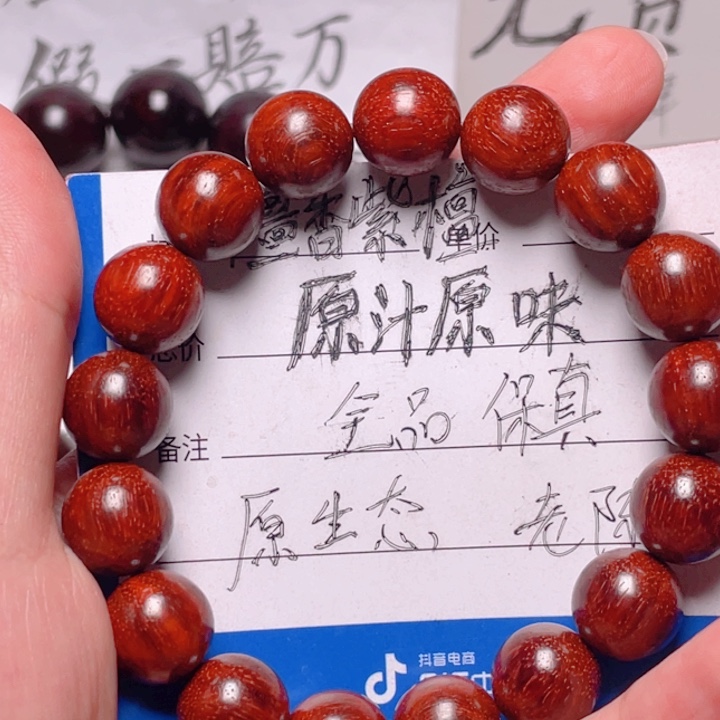 假一赔万
檀香紫檀
单价
原汁原味
总价
全品 保真
备注
原生态 老
抖音电商